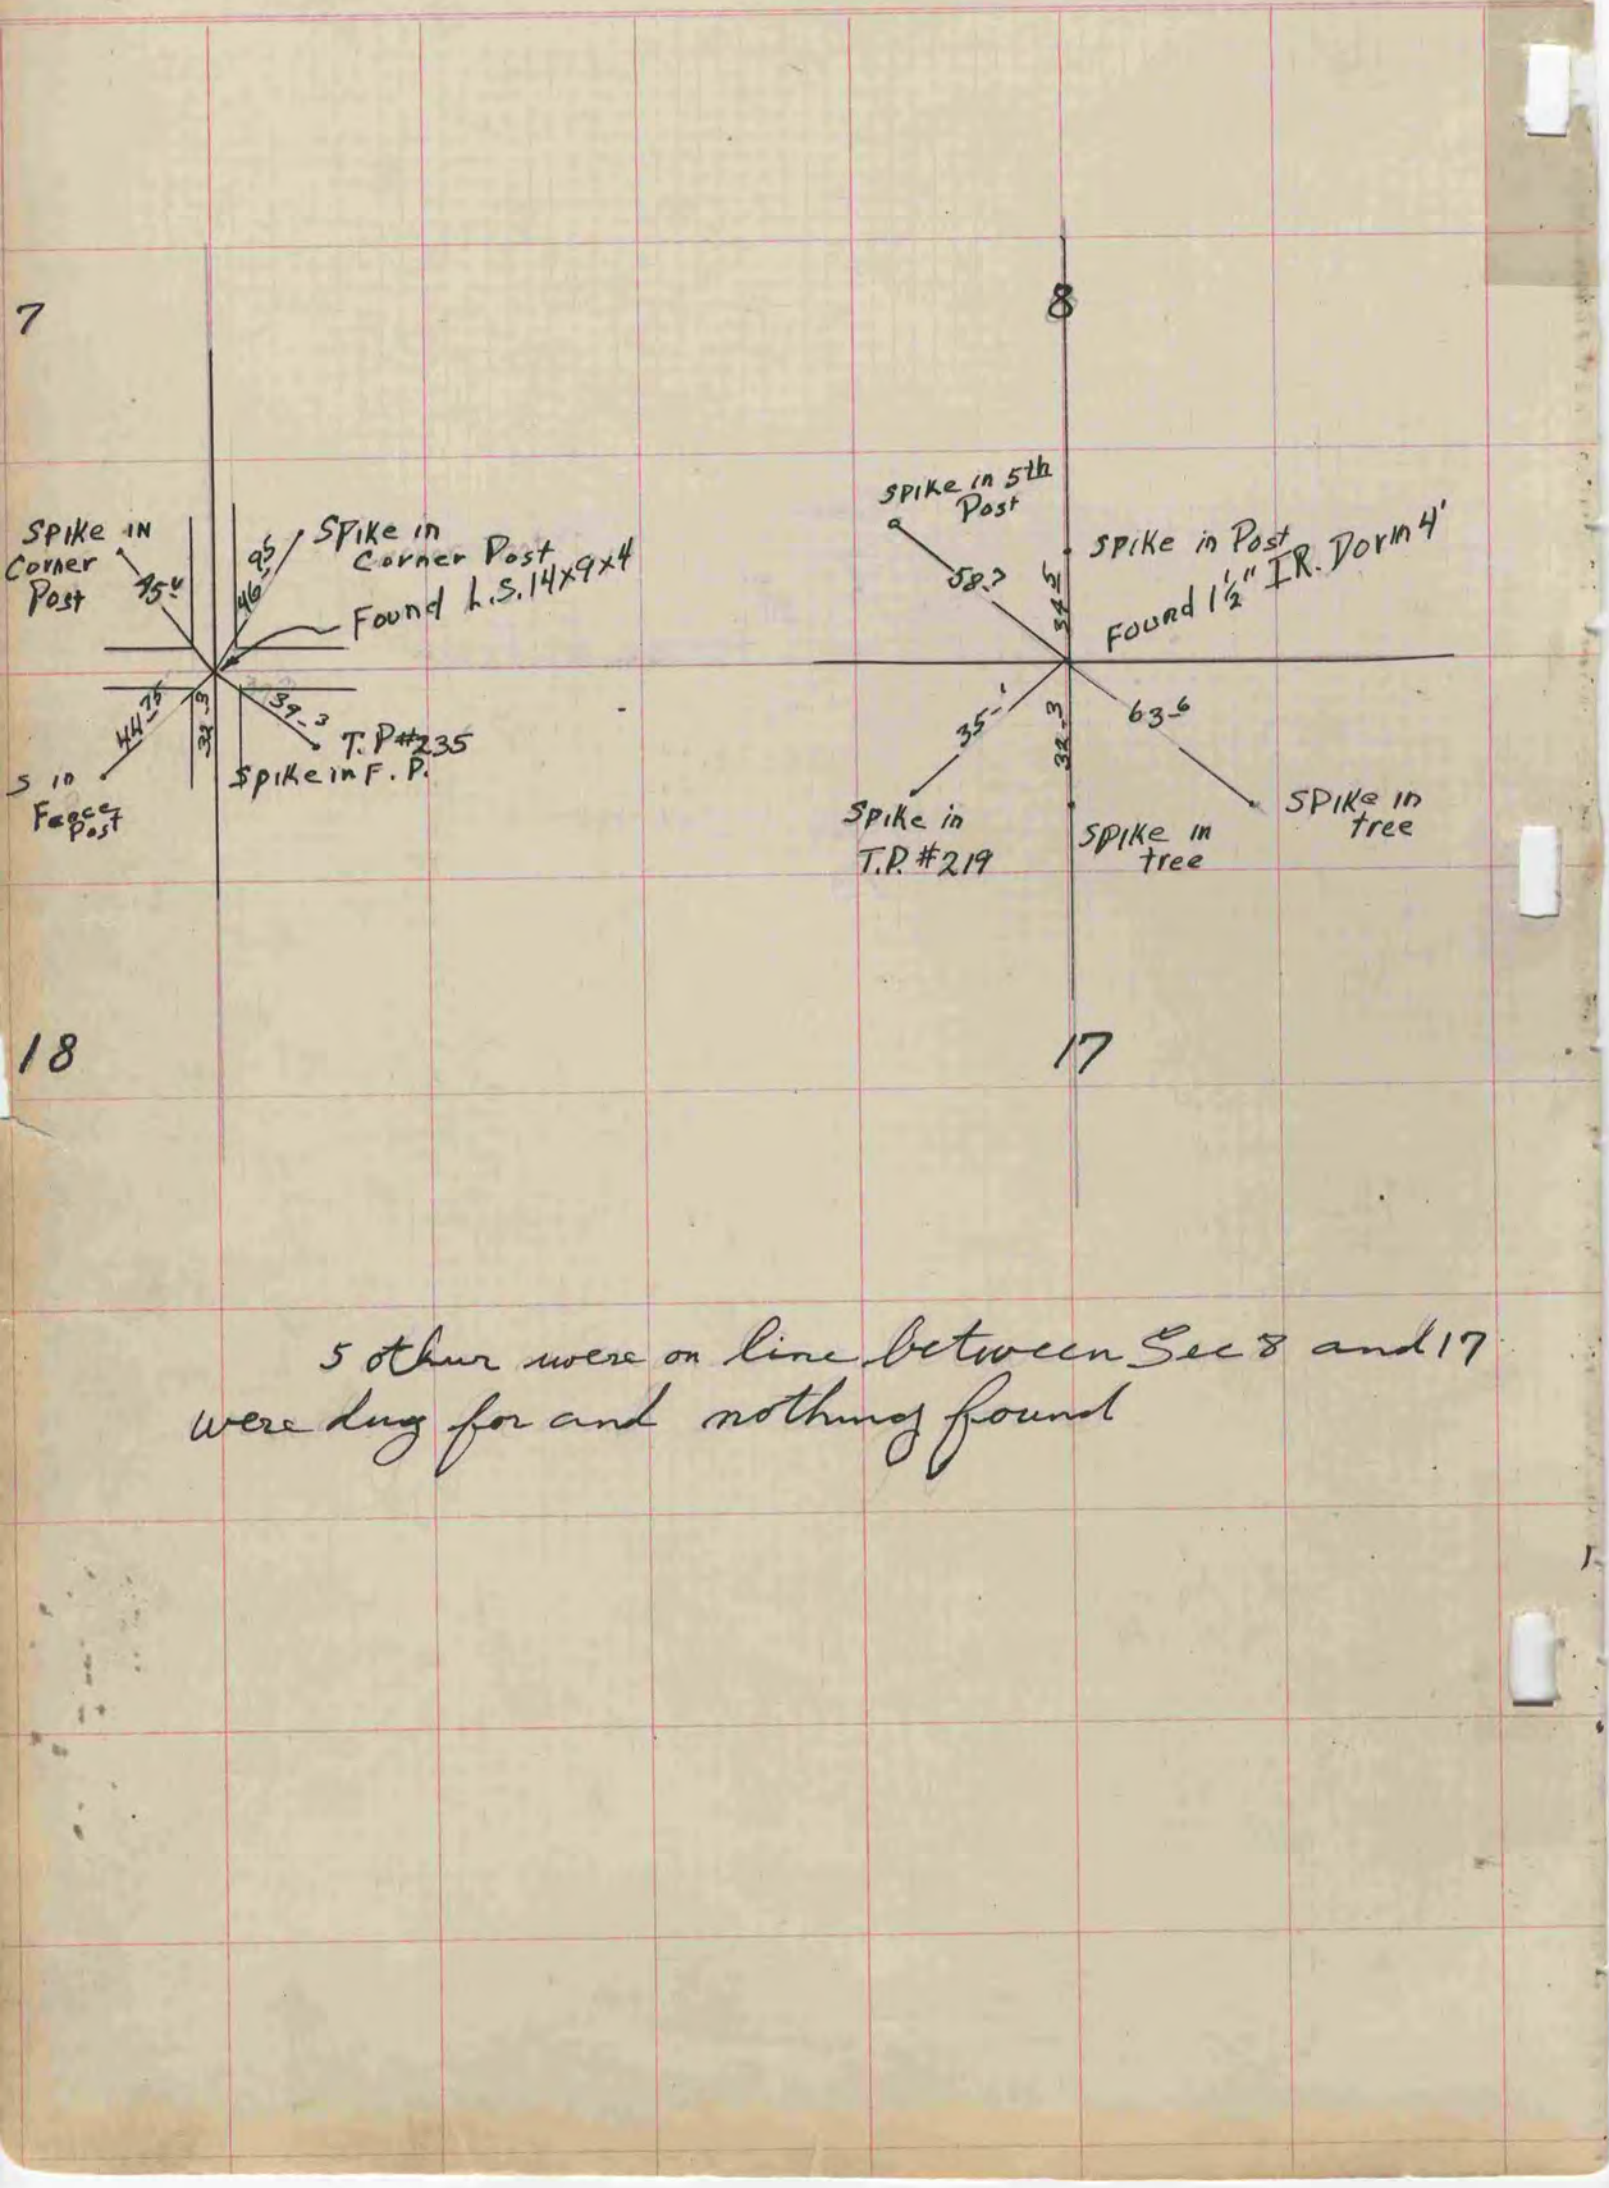 7
8
Spike in
Corner
Post
Spike in
Corner Post
Found L.S. 14x9x4
T.P #235
Spike in F. P.
S in
Fence
Post
Spike in 5th
Post
58.7
Spike in Post
Found 1½" I.R. Down 4'
35
Spike in
T.P. #219
63.6
Spike in
tree
Spike in
tree
18
17
5 other were on line between Sec 8 and 17
were dug for and nothing found